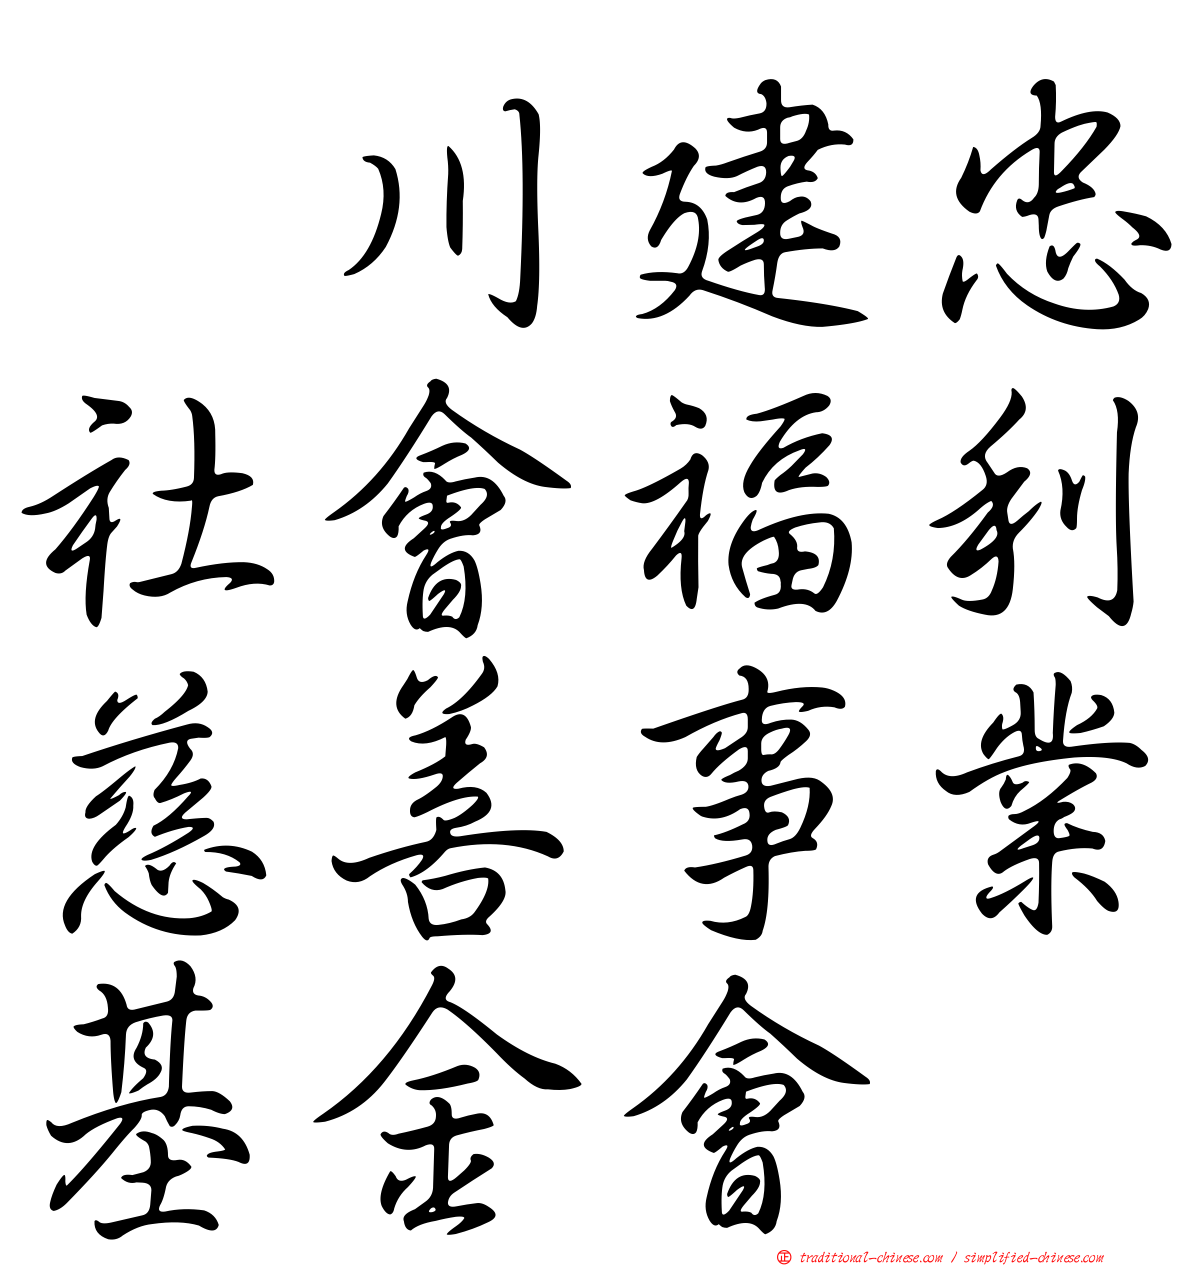 川建忠
社會福利
慈善事業
基金會
正 traditional-chinese.com / simplified-chinese.com